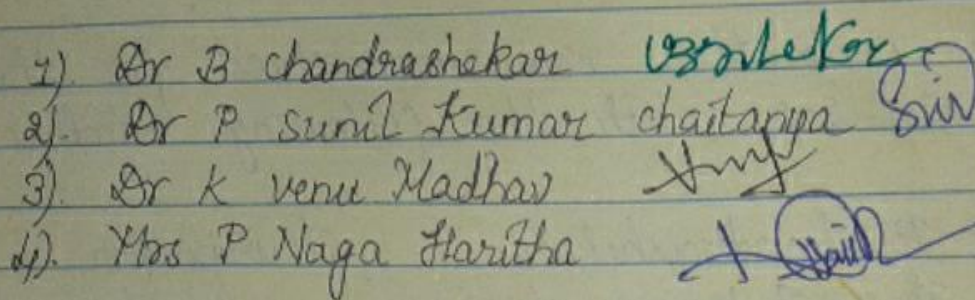 1). Dr B chandrashekar
2). Dr P sunil Kumar chaitanya
3). Dr K venu Madhav
4). Mrs P Naga Haritha